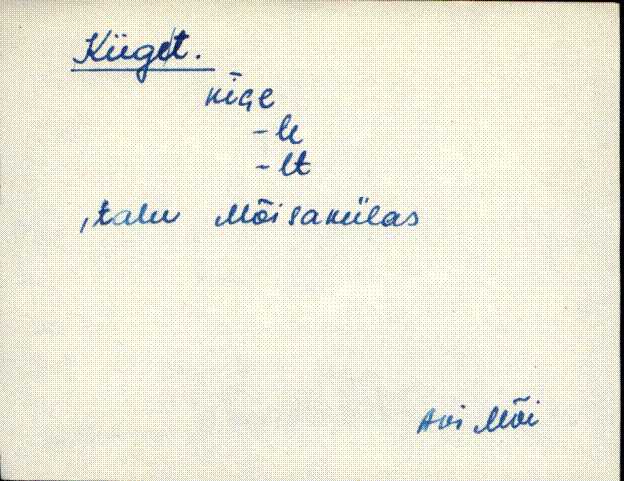 Küget.
kīge
-le
-lt
, talu Mõisakülas
Avi Mõi